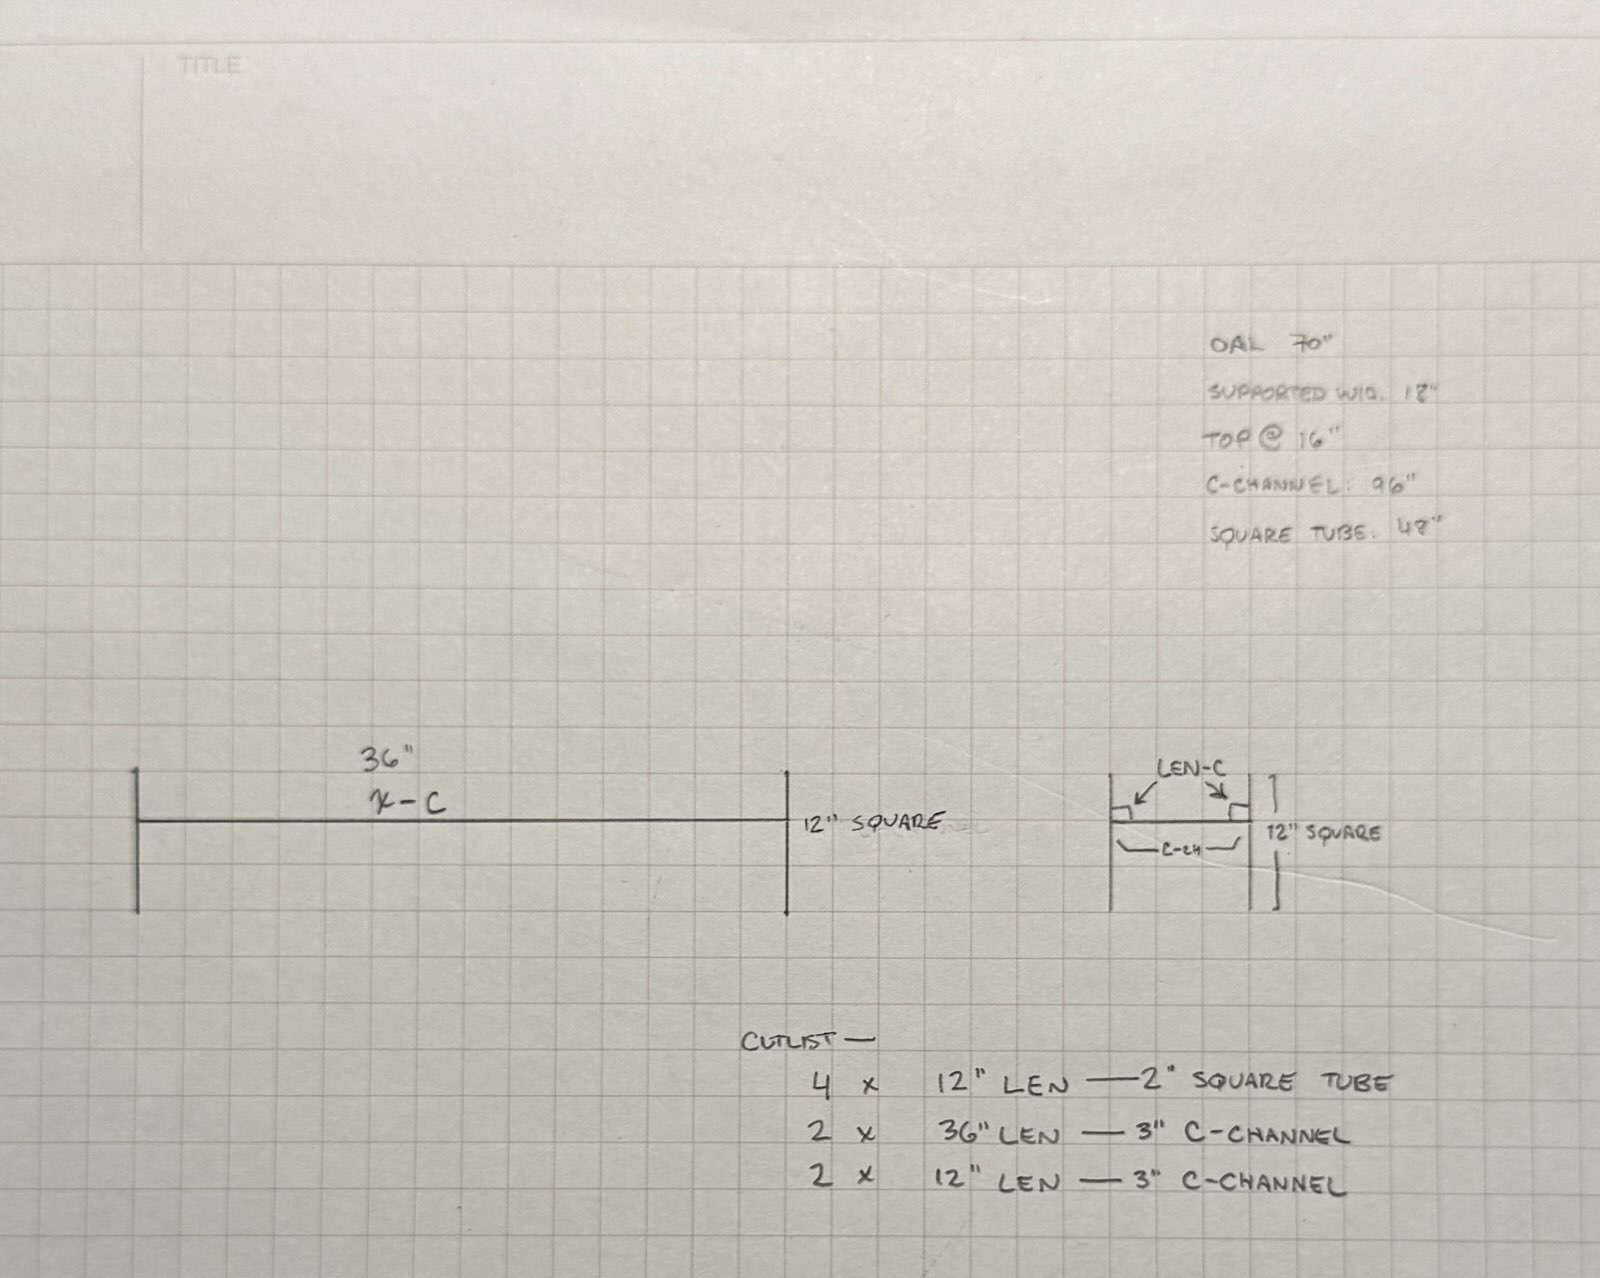 TITLE
OAL 70"
SUPPORTED WID. 12"
TOP @ 16"
C-CHANNEL: 96"
SQUARE TUBE: 48"
36"
X-C
12" SQUARE
LEN-C
C-CH
12" SQUARE
CUTLIST —
4 x 12" LEN — 2" SQUARE TUBE
2 x 36" LEN — 3" C-CHANNEL
2 x 12" LEN — 3" C-CHANNEL